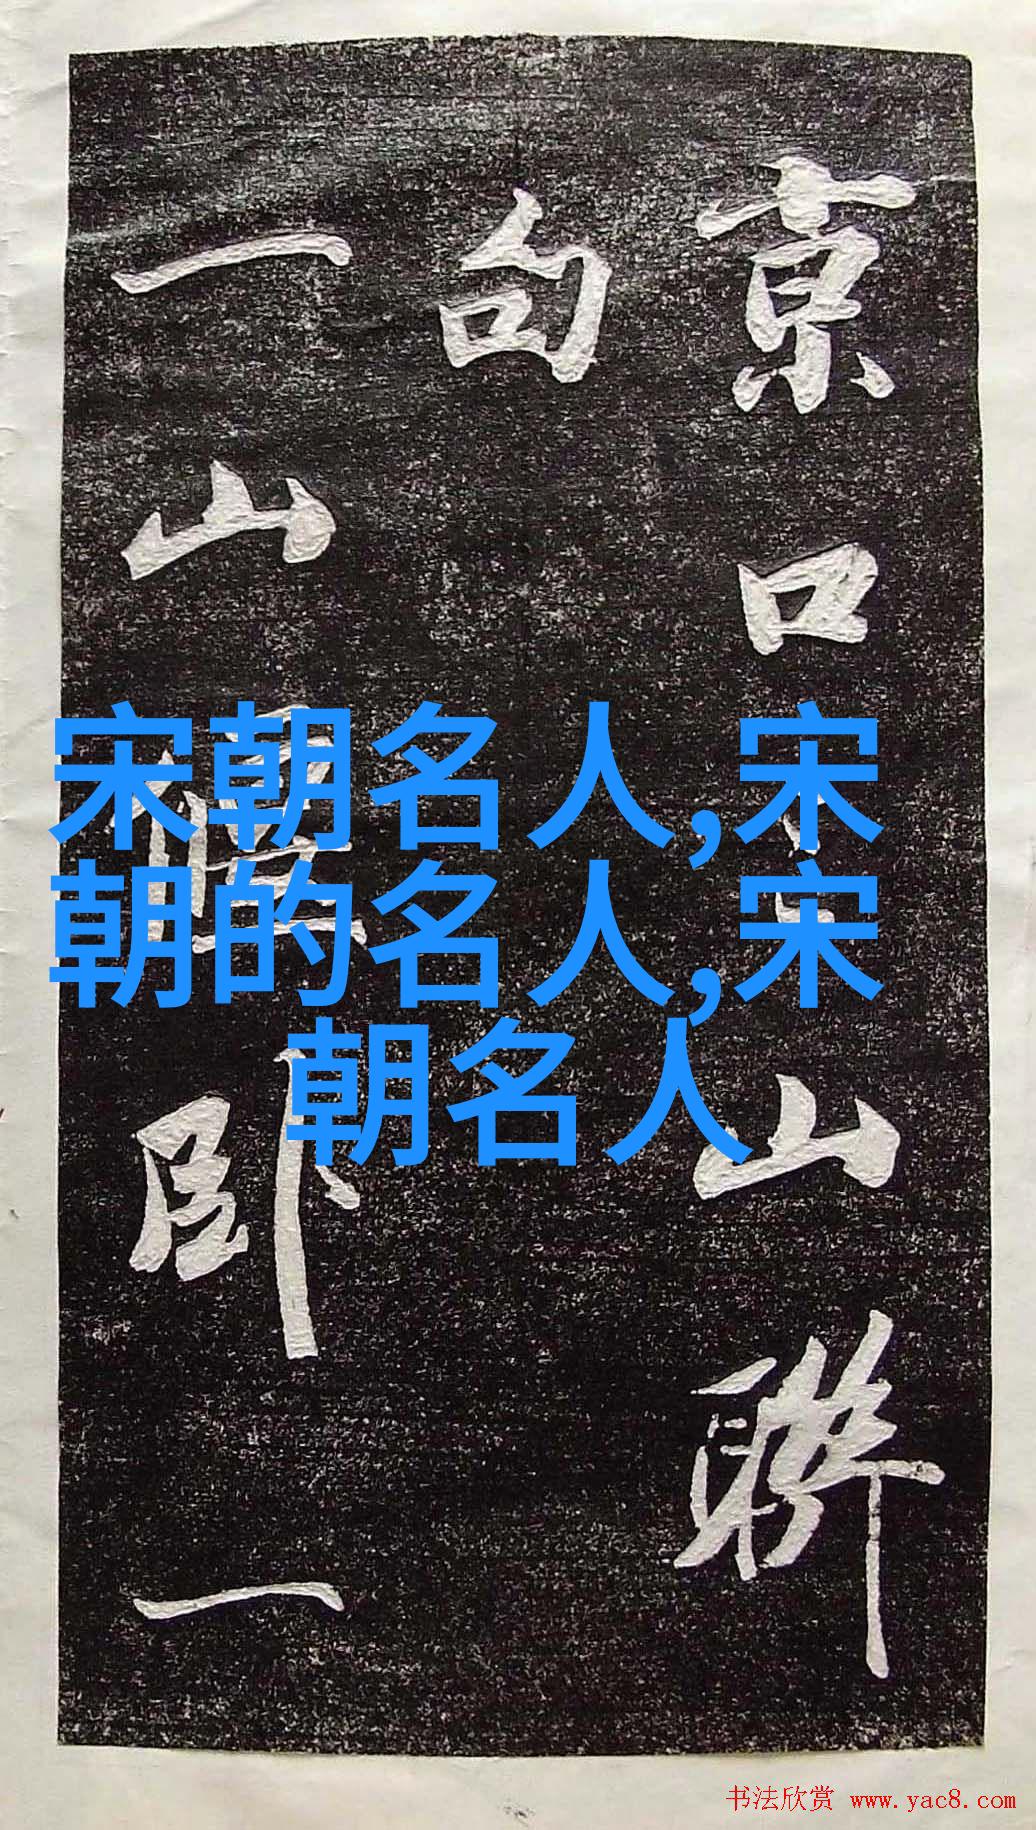 宋朝名人,宋
朝的名人,宋
朝名人
京口山聯
句
一山卧一
书法欣赏 www.yac8.com